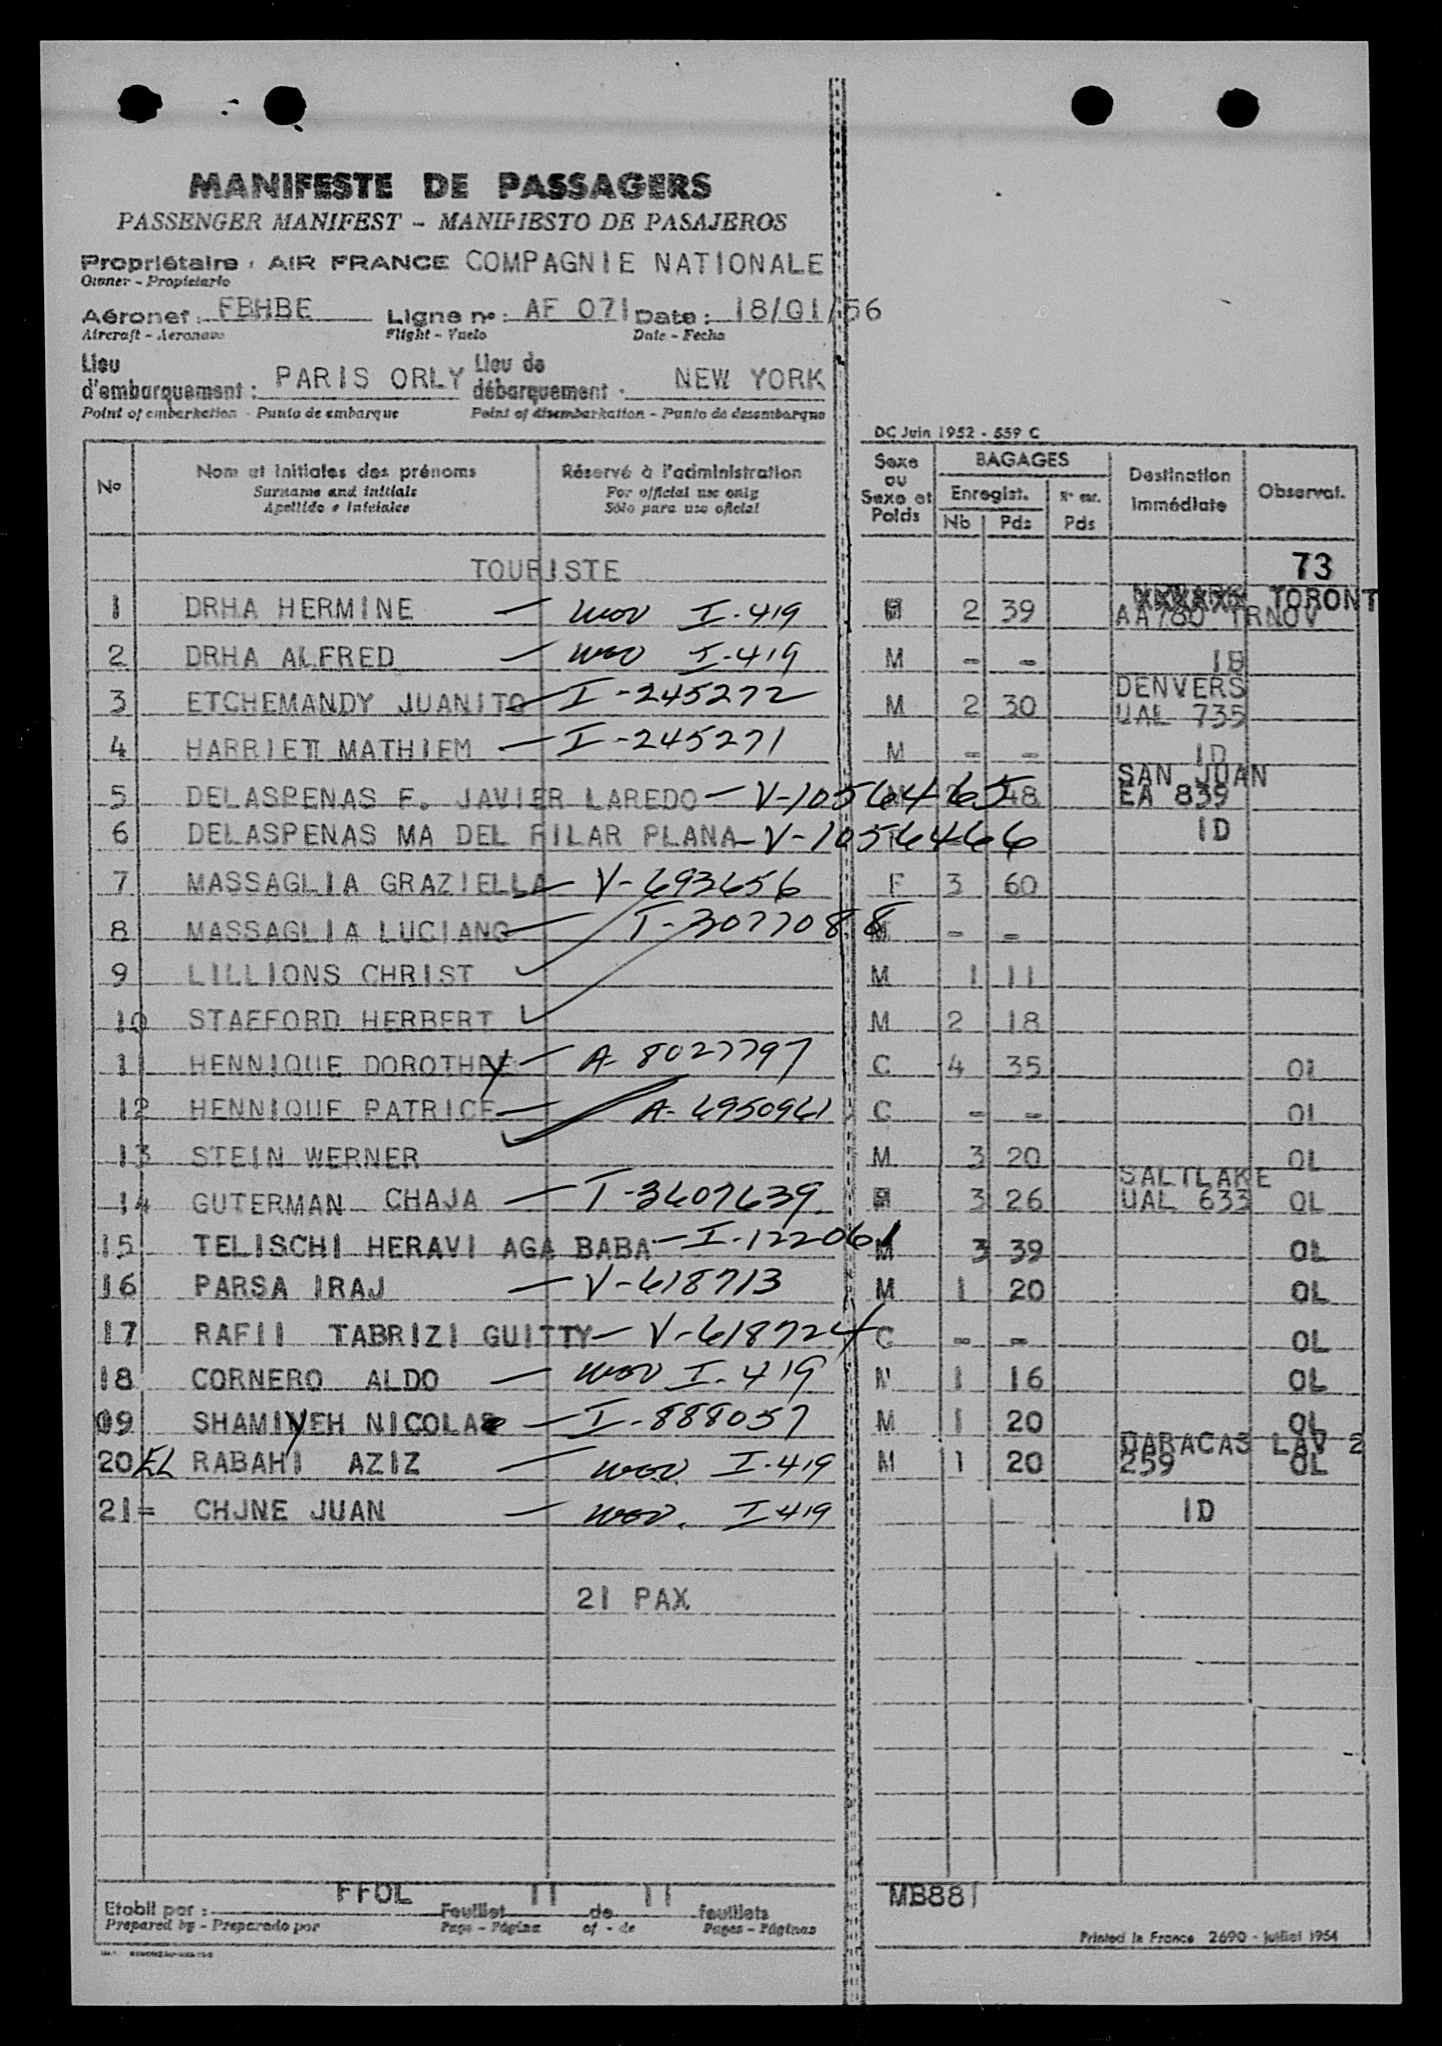 MANIFESTE DE PASSAGERS
PASSENGER MANIFEST - MANIFIESTO DE PASAJEROS
Propriétaire : AIR FRANCE COMPAGNIE NATIONALE
Owner - Propietario
Aéronef : FBHBE Ligne no : AF 071 Date : 18/01/56
Aircraft - Aeronave Flight - Vuelo Date - Fecha
Lieu d'embarquement : PARIS ORLY Lieu de débarquement : NEW YORK
Point of embarkation - Punto de embarque Point of disembarkation - Punto de desembarque
DC Juin 1952 - 559 C
No Nom et initiales des prénoms Réservé à l'administration Sexe ou Sexe et Poids BAGAGES Destination immédiate Observat.
Surname and initials For official use only Enregist. N enr.
Apellido e iniciales Sólo para uso oficial Nb Pds Pds
TOURISTE 73
1 DRHA HERMINE — wov I-419 2 39 TORONT AA780 TRNOV
2 DRHA ALFRED — wov I-419 M - - ID
3 ETCHEMANDY JUANITO — I-245272 M 2 30 DENVERS UAL 735
4 HARRIETT MATHIEM — I-245271 M - - ID
5 DELASPENAS F. JAVIER LAREDO — V-10564465 48 SAN JUAN EA 839
6 DELASPENAS MA DEL PILAR PLANA — V-10564466 ID
7 MASSAGLIA GRAZIELLA — V-693656 F 3 60
8 MASSAGLIA LUCIANO — T-3077088 M - -
9 LILLIONS CHRIST M 1 11
10 STAFFORD HERBERT M 2 18
11 HENNIQUE DOROTHEE — A-8027797 C 4 35 OL
12 HENNIQUE PATRICE — A-6950961 C - - OL
13 STEIN WERNER M 3 20 OL
14 GUTERMAN CHAJA — T-3607639 3 26 SALTLAKE UAL 633 OL
15 TELISCHI HERAVI AGA BABA — I-122061 M 3 39 OL
16 PARSA IRAJ — V-618713 M 1 20 OL
17 RAFII TABRIZI GUITTY — V-618724 C - - OL
18 CORNERO ALDO — wov I-419 M 1 16 OL
19 SHAMIYEH NICOLAS — I-888057 M 1 20 OL
20 EL RABAHI AZIZ — wov I-419 M 1 20 CARACAS LAV 2 259 OL
21= CHJNE JUAN — wov. I-419 ID
21 PAX
Etabli par : FFOL Feuillet 11 de 11 feuillets MB881
Prepared by - Preparado por Page - Página of - de Pages - Páginas
Printed in France 2690 - juillet 1954